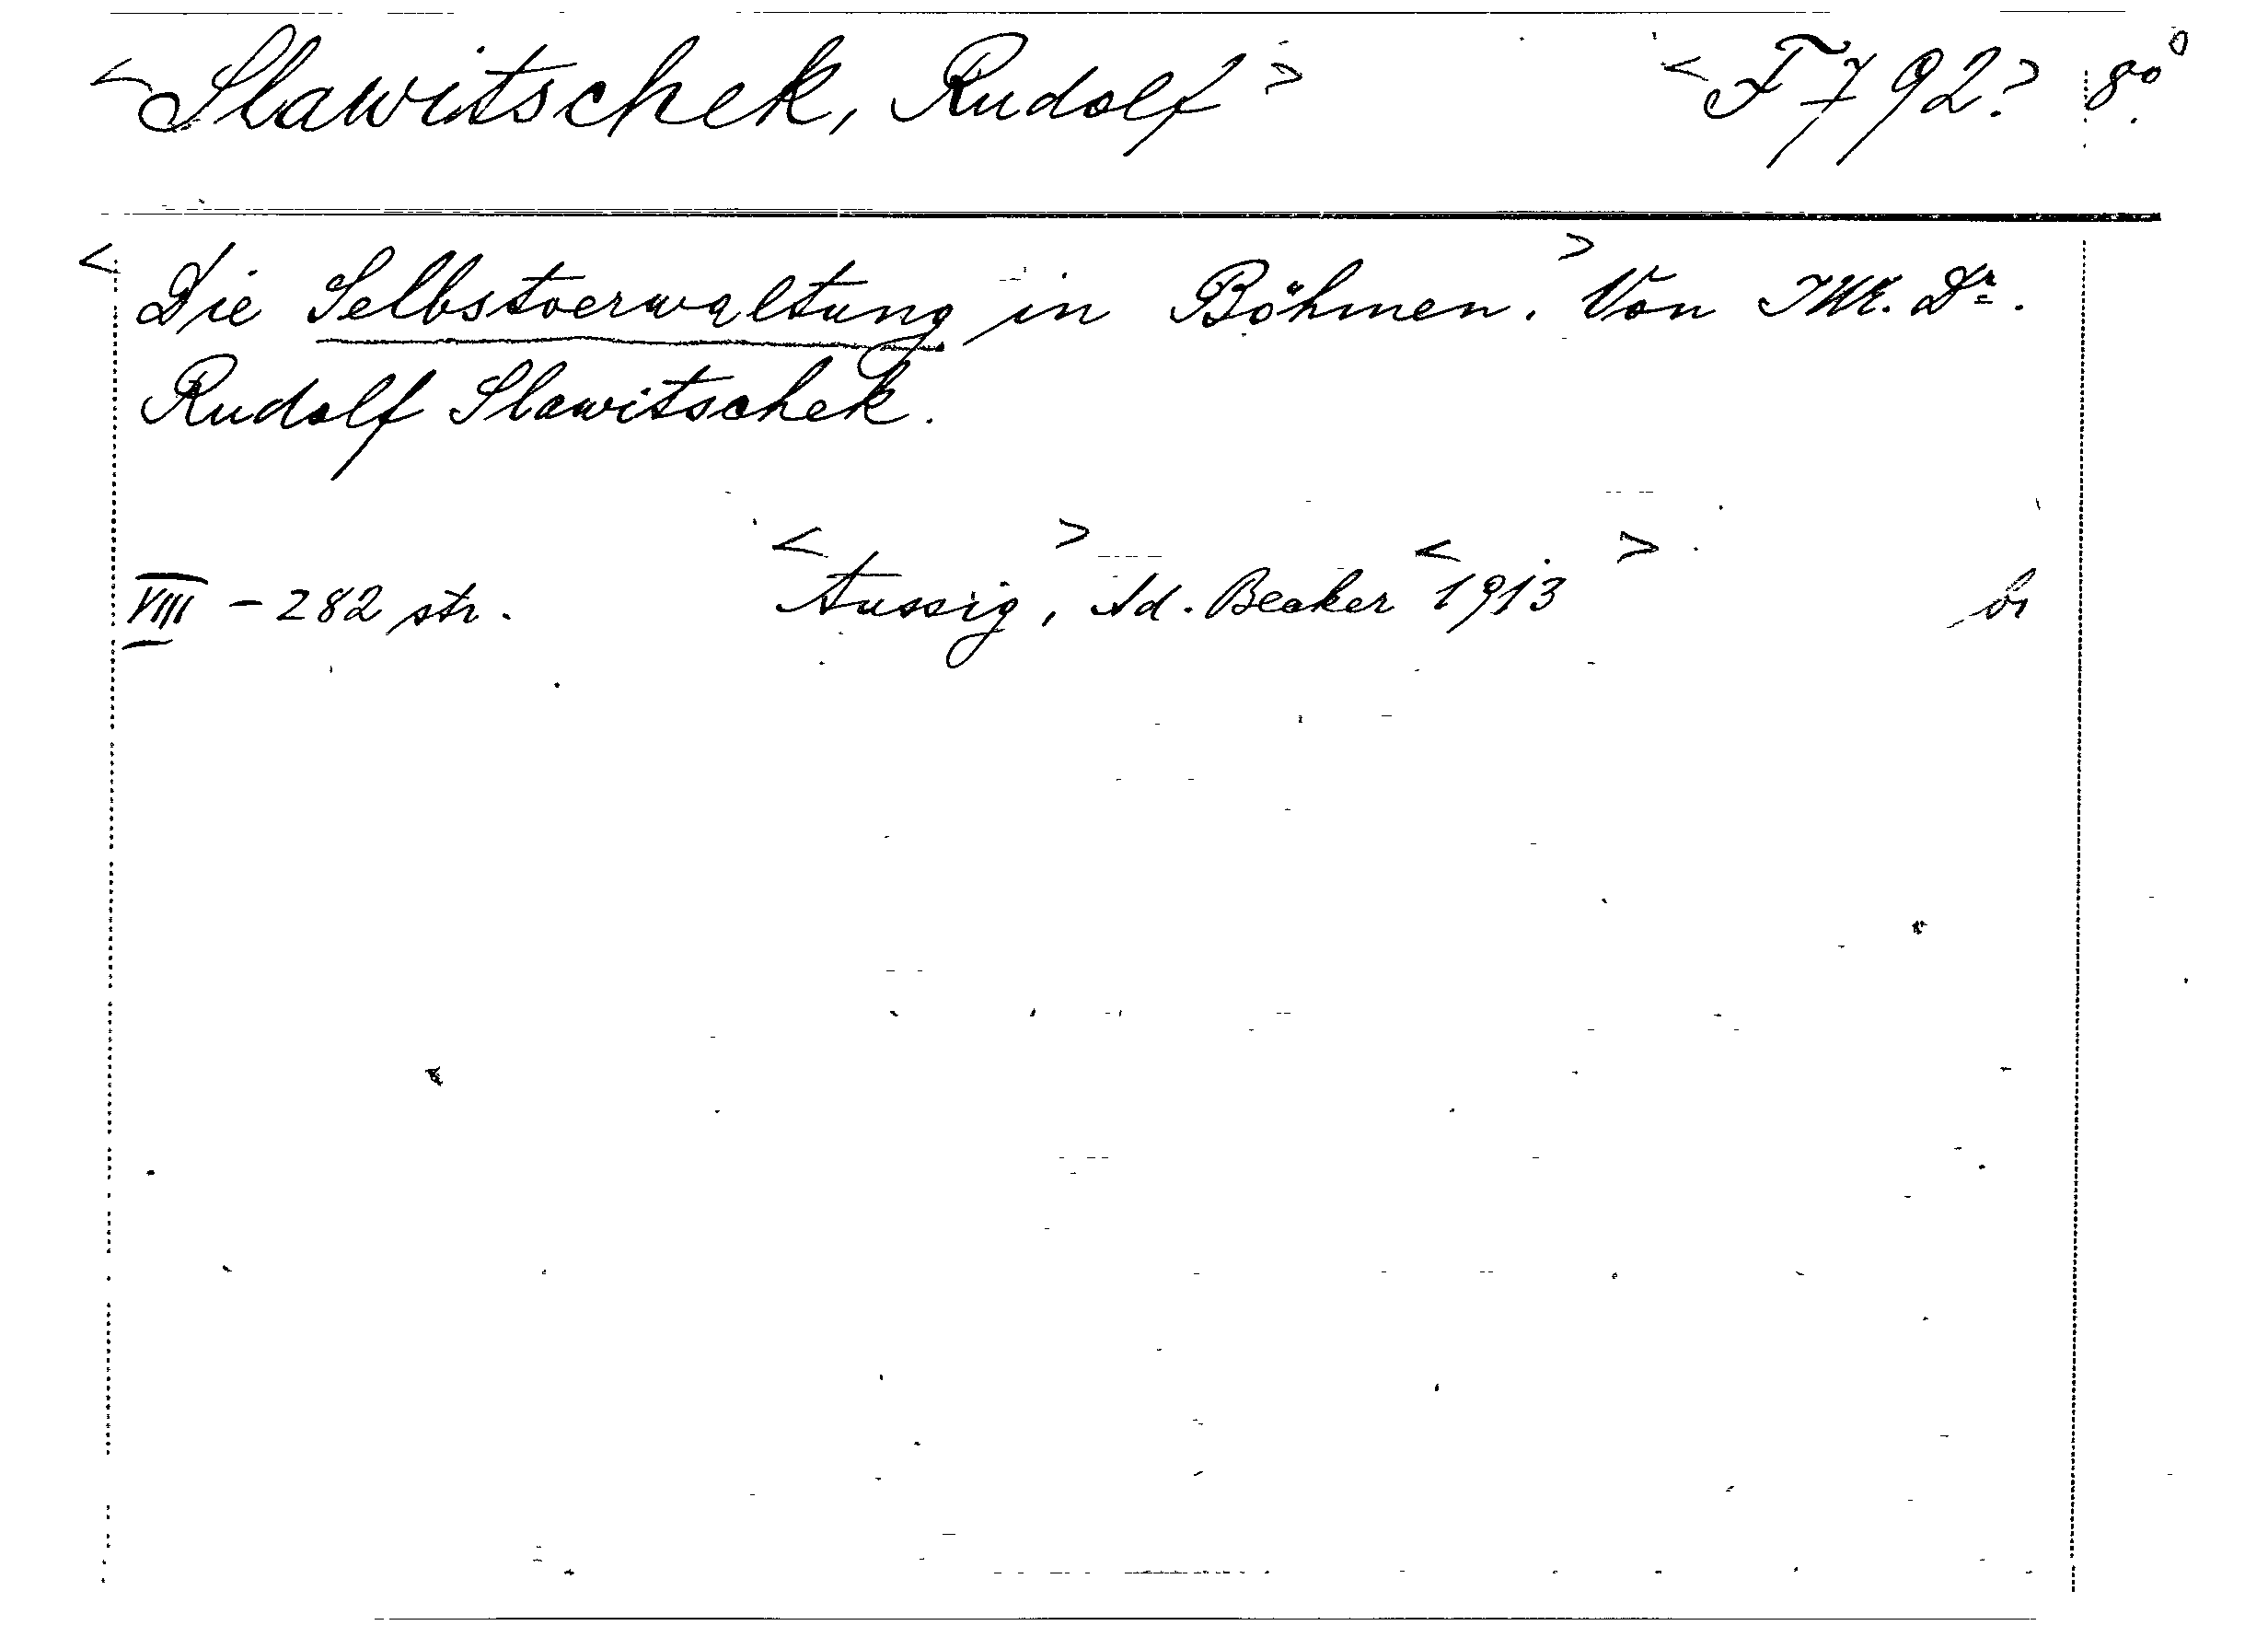 <Slawitschek, Rudolf> <F 792> 8°
<Die Selbstverwaltung in Böhmen.> Von JUC. Dr.
Rudolf Slawitschek.
VIII - 282 str. <Aussig,> Ad. Becker <1913>